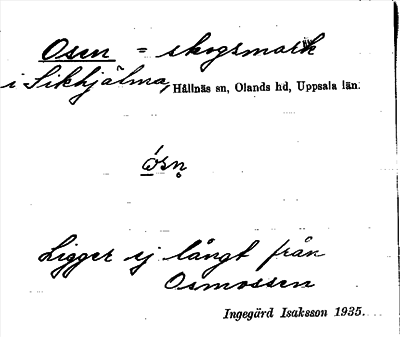 Osen = skogsmark
i Sikhjälma, Hållnäs sn, Olands hd, Uppsala län.
ósn̥
Ligger ej långt från
Osmossen
Ingegärd Isaksson 1935.